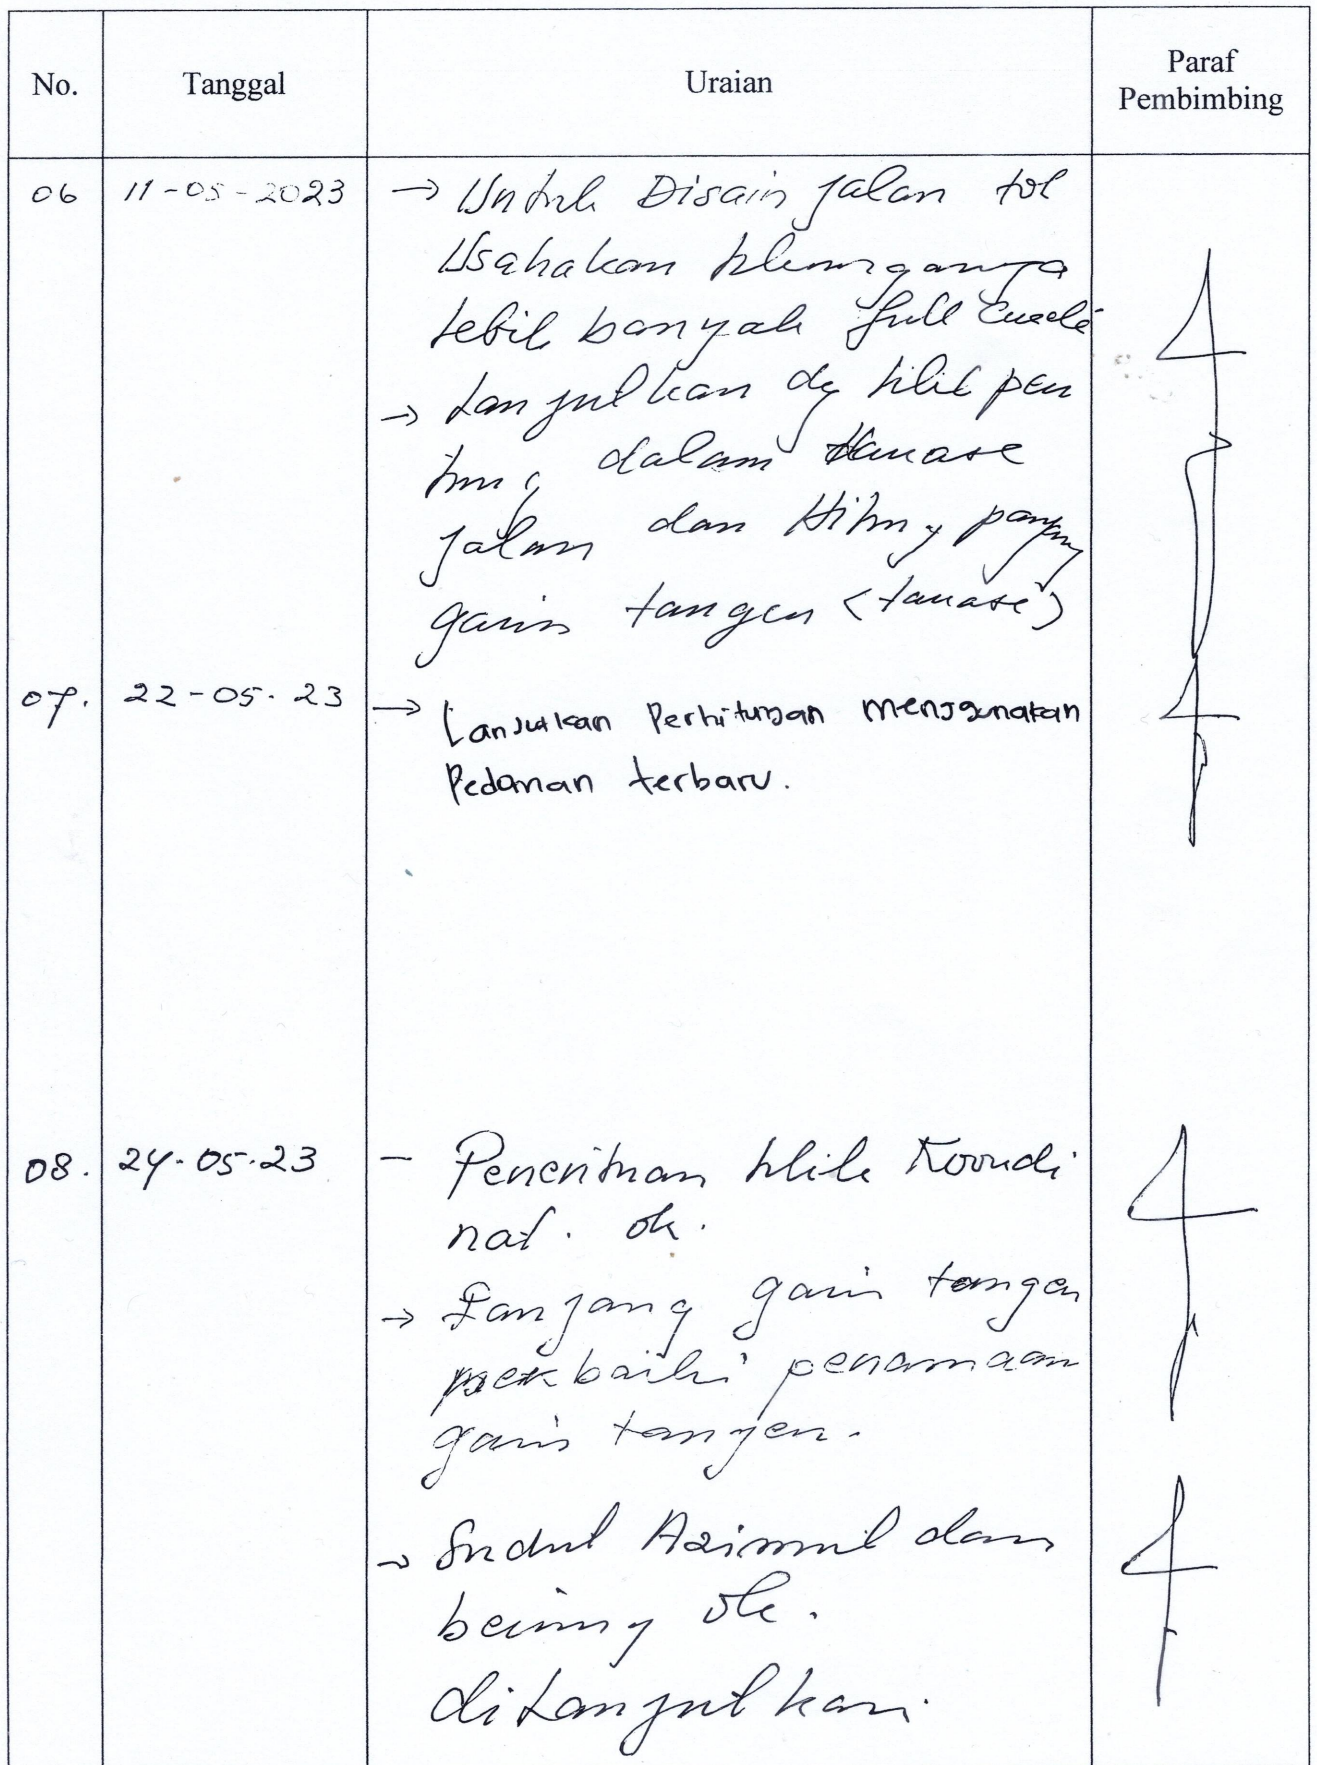 No.
Tanggal
Uraian
Paraf
Pembimbing
06
11-05-2023
→ Untuk Disain jalan tol
Usahakan
lebih banyak full
→ Lanjutkan dg titik pen
ting dalam
jalan dan Hitung panjang
garis tangen (
07.
22-05-23
→ Lanjutkan Perhitungan menggunakan
Pedoman terbaru.
08.
24-05-23
- Penentuan titik Koordi
nat. ok.
→ Panjang garis tangen
perbaiki penamaan
garis tangen.
→ Sudut Azimut dan
bering ok.
dilanjutkan.